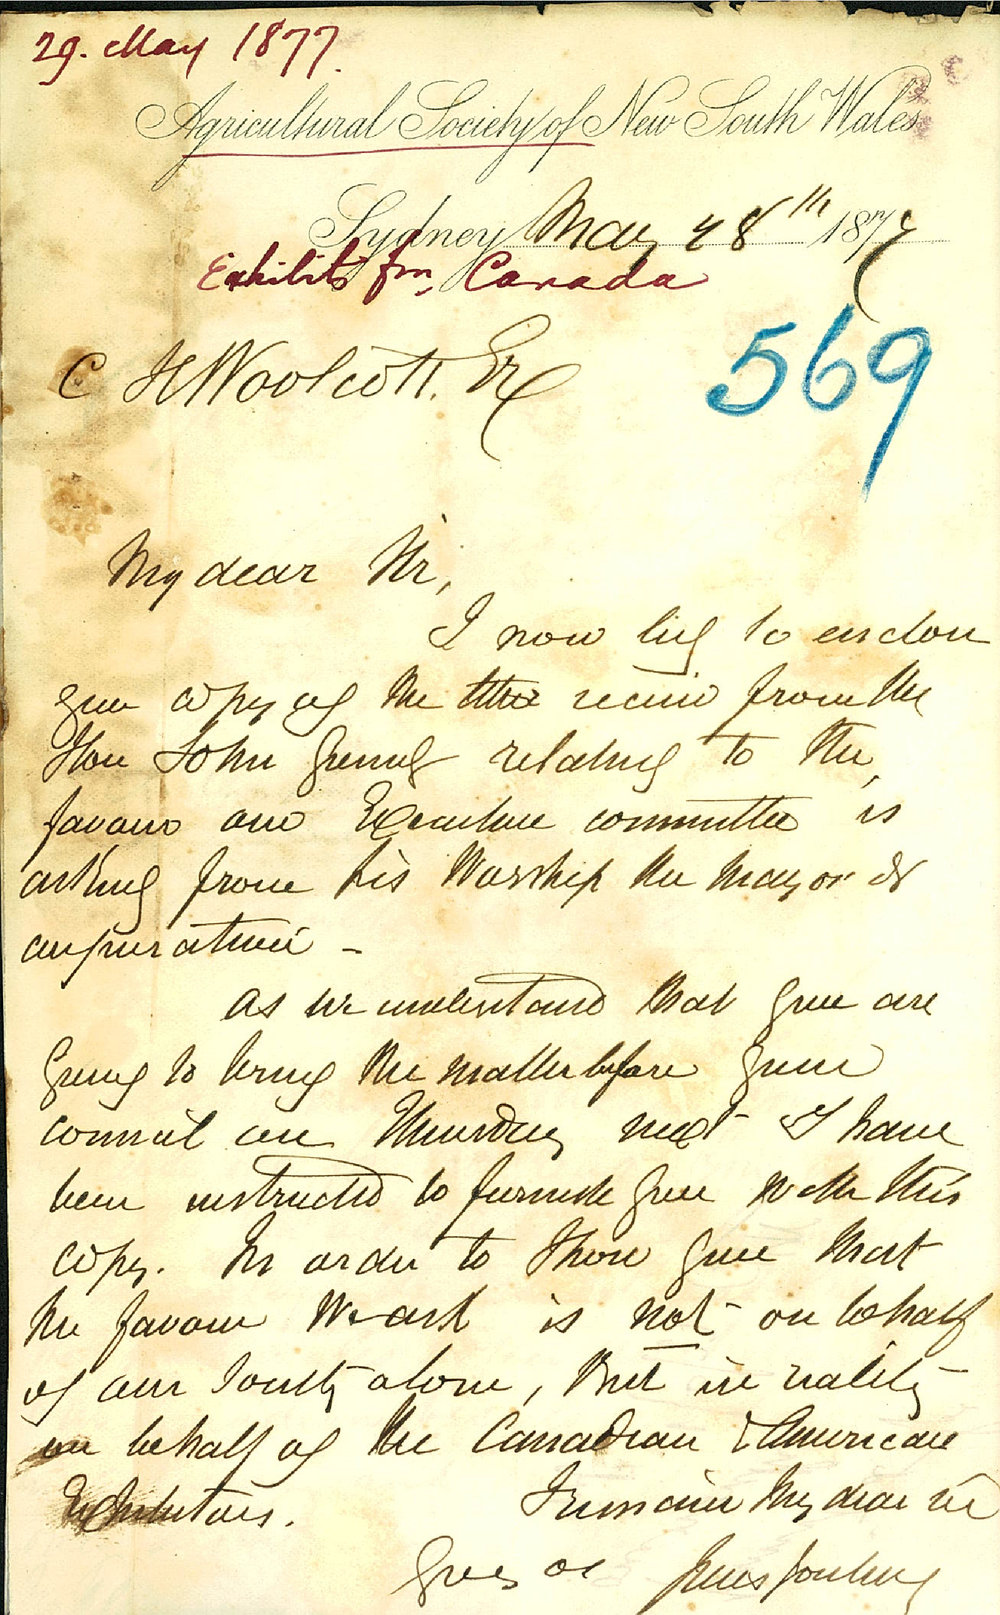 29. May 1877.
Agricultural Society of New South Wales
Sydney May 28th 1877
Exhibits fm. Canada
569
C H Woolcott. Esq
My dear Sir,
I now beg to enclose
you copy of the letter received from the
Hon John Young relating to the
favour our Executive committee is
asking from his Worship the Mayor &
corporation -
As we understand that you are
going to bring the matter before your
council on Thursday next I have
been instructed to furnish you with this
copy. In order to show you that
the favour we ask is not on behalf
of our Society alone, but in reality
on behalf of the Canadian & American
Exhibitors. I remain my dear sir